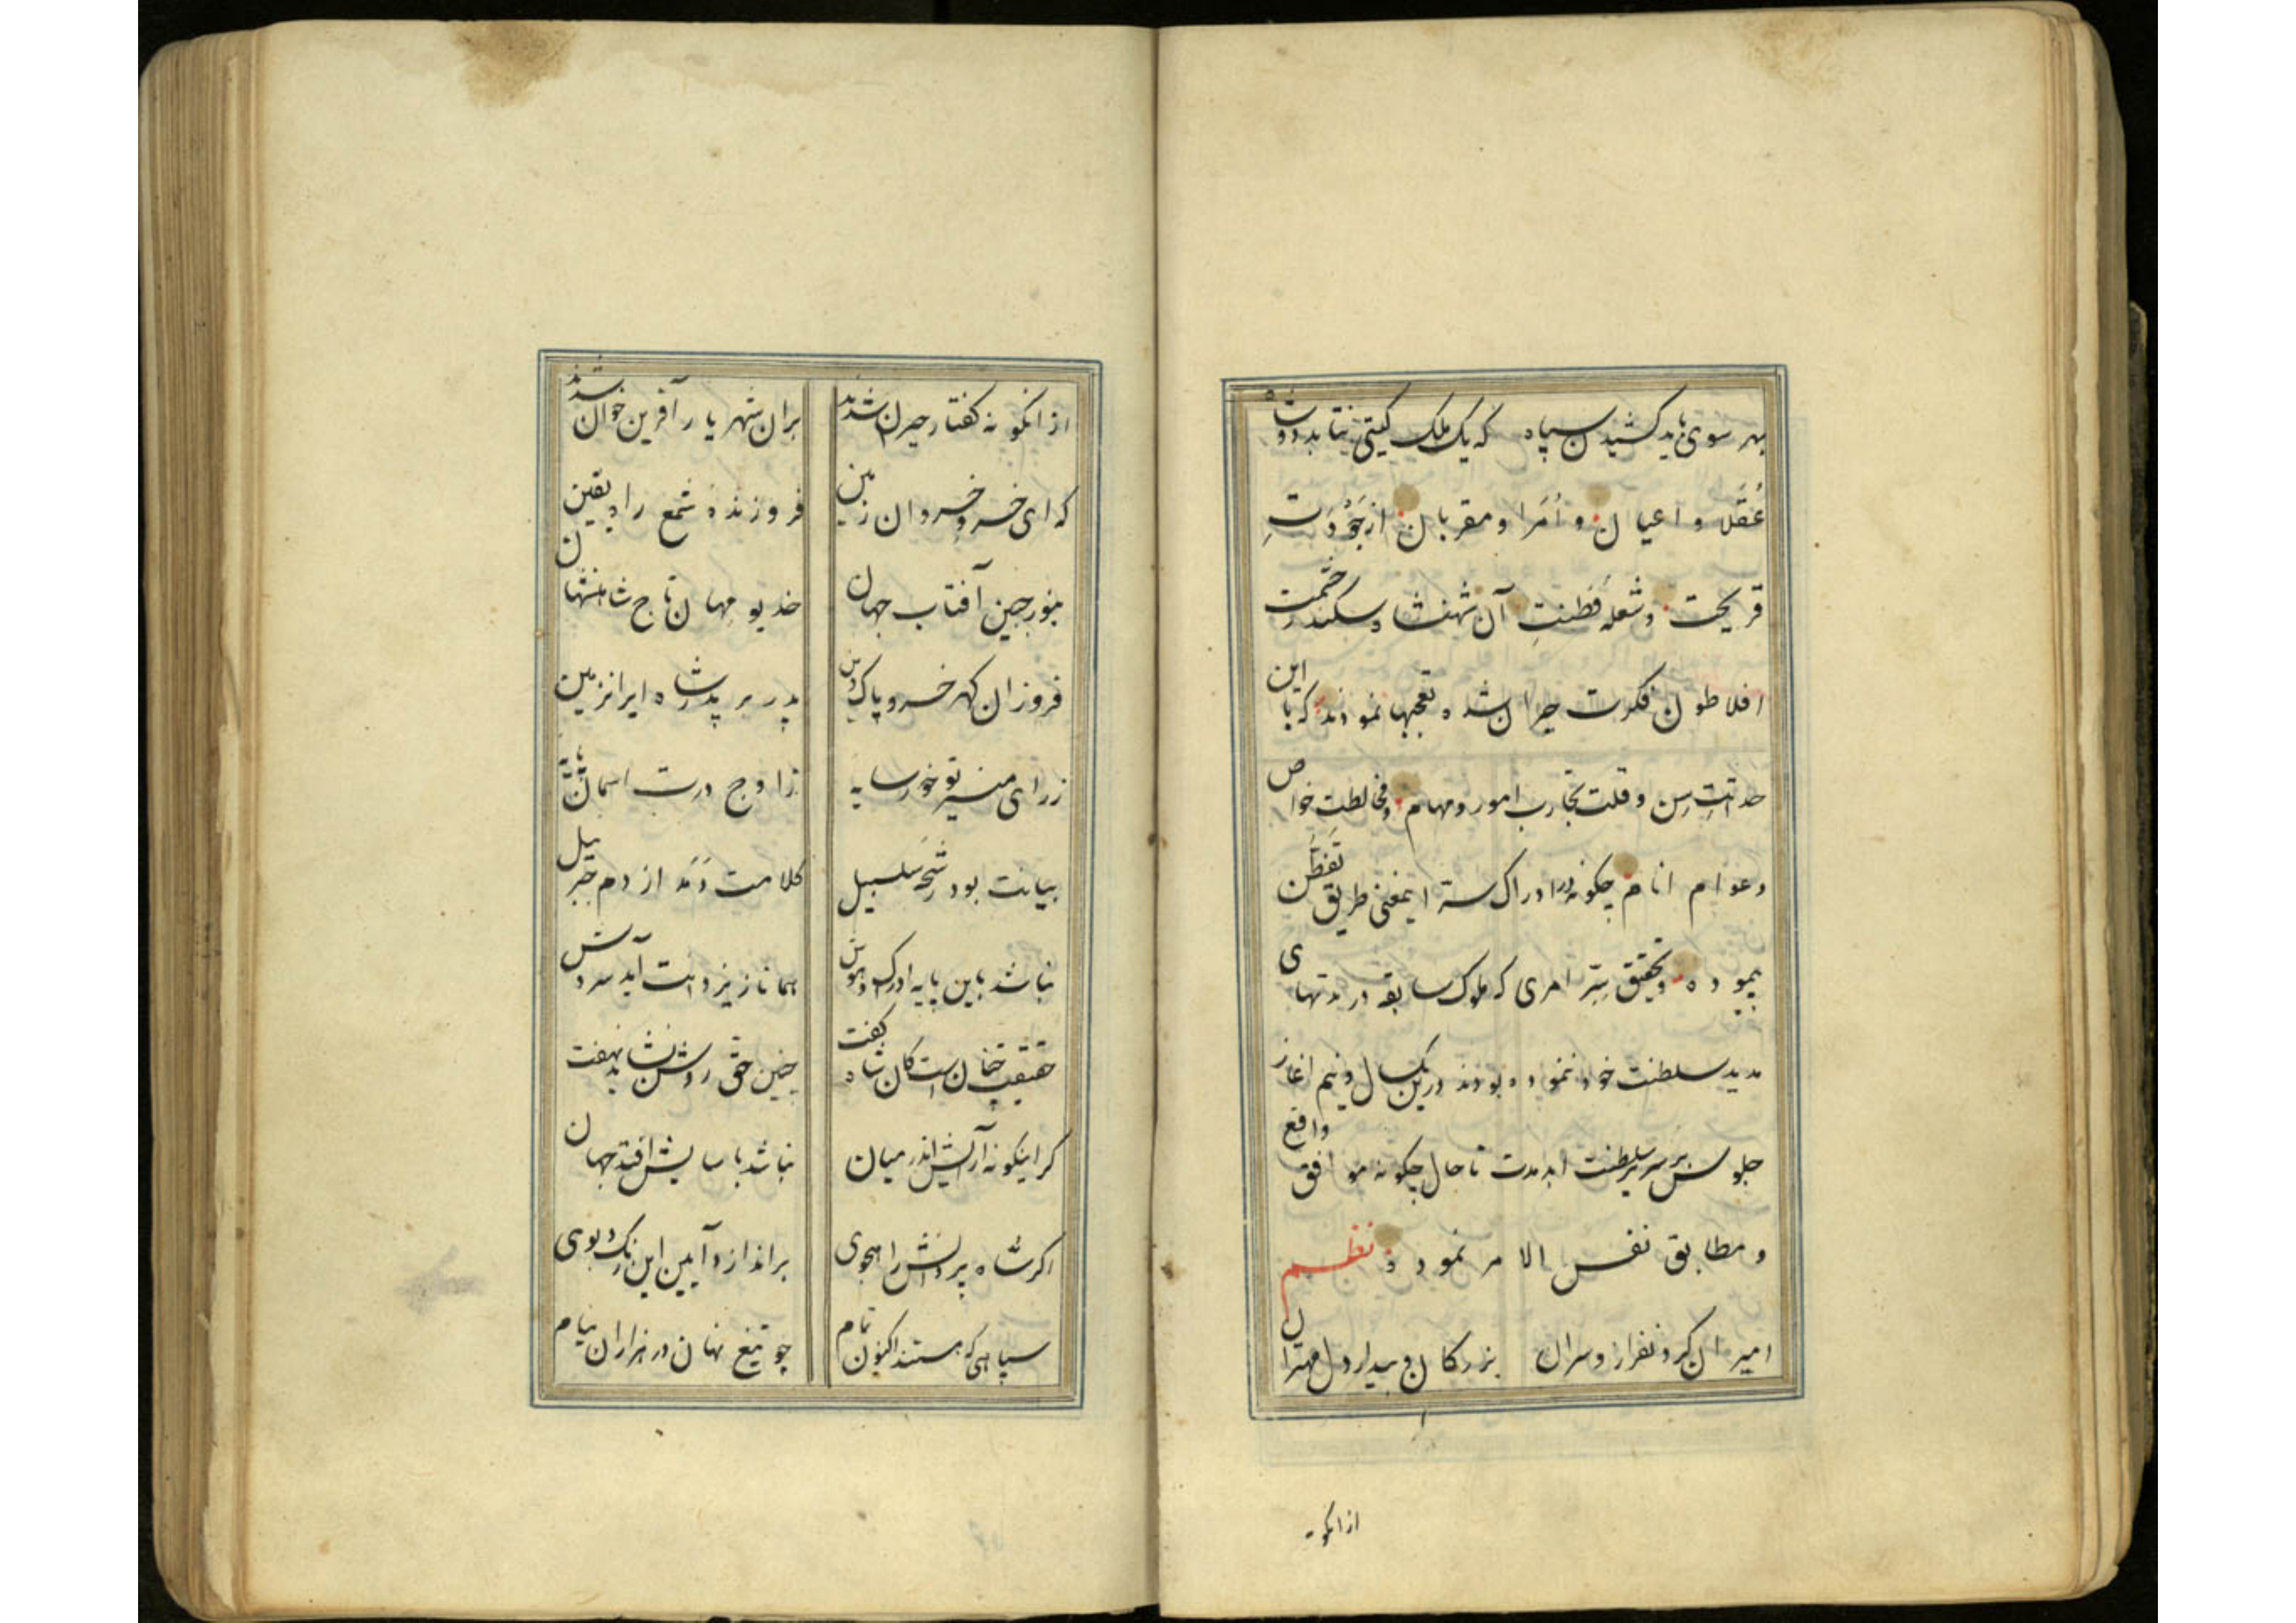 بهر سوی باید کشیدن سپاه که یک ملک گیتی نتابد دو شاه
عُقَلا و اعیان و اُمَرا و مقربان از جَوْدَتِ
قریحت و شعله فطنتِ آن شهنشاه سکندر حشمت
افلاطون فکرت حیران شده تعجبها نمودند که با این
حداثتِ سِن و قلت تجارب امور و مهام و مخالطت خواص
و عوام انام چکونه در ادراک ستر اینمعنی طریق تَفَطُّن
پیموده و تحقیق سِتّرِ امری که ملوک سابقه در مدتهای
مدید سلطنت خود ننموده بودند درین یکسال و نیم اغاز
جلوس بَر سریر سلطنت ابد مدت تا حال چکونه موافق واقع
و مطابق نفس الامر نمودند نظم
امیران کرد نفراز و سران بزرکان و بیدار دل مهتران
از انکونه
از انکونه کفتار حیران شدند بران شهریار آفرین خوان شدند
که ای خسرو خسروان زمین فروزندهٔ شمع راه یقین
منور جبین آفتاب جهان خدیو مهان تاج شاهنشهان
فروزان کهر خسرو پاک دین پدر بر پدر شاه ایرانزمین
ز رای منیر تو خور سایه ز اوج درت اسمان پایه
بیانت بود رشحهٔ سلسبیل کلامت دَمَد از دم جبرئیل
نباشد باین پایه ادراک و هوش همانا ز یزدانت آید سروش
حقیقت چنان است کان شاه کفت چنین حق روشن نشاید نهفت
کر اینکونه آرامش اندر میان نباشد باسایش افتد جهان
اکر شاه پر دانش راهجوی براندازد آیین این رنک و بوی
سپاهی که هستند اکنون تمام چو تیغ نهان در هزاران نیام